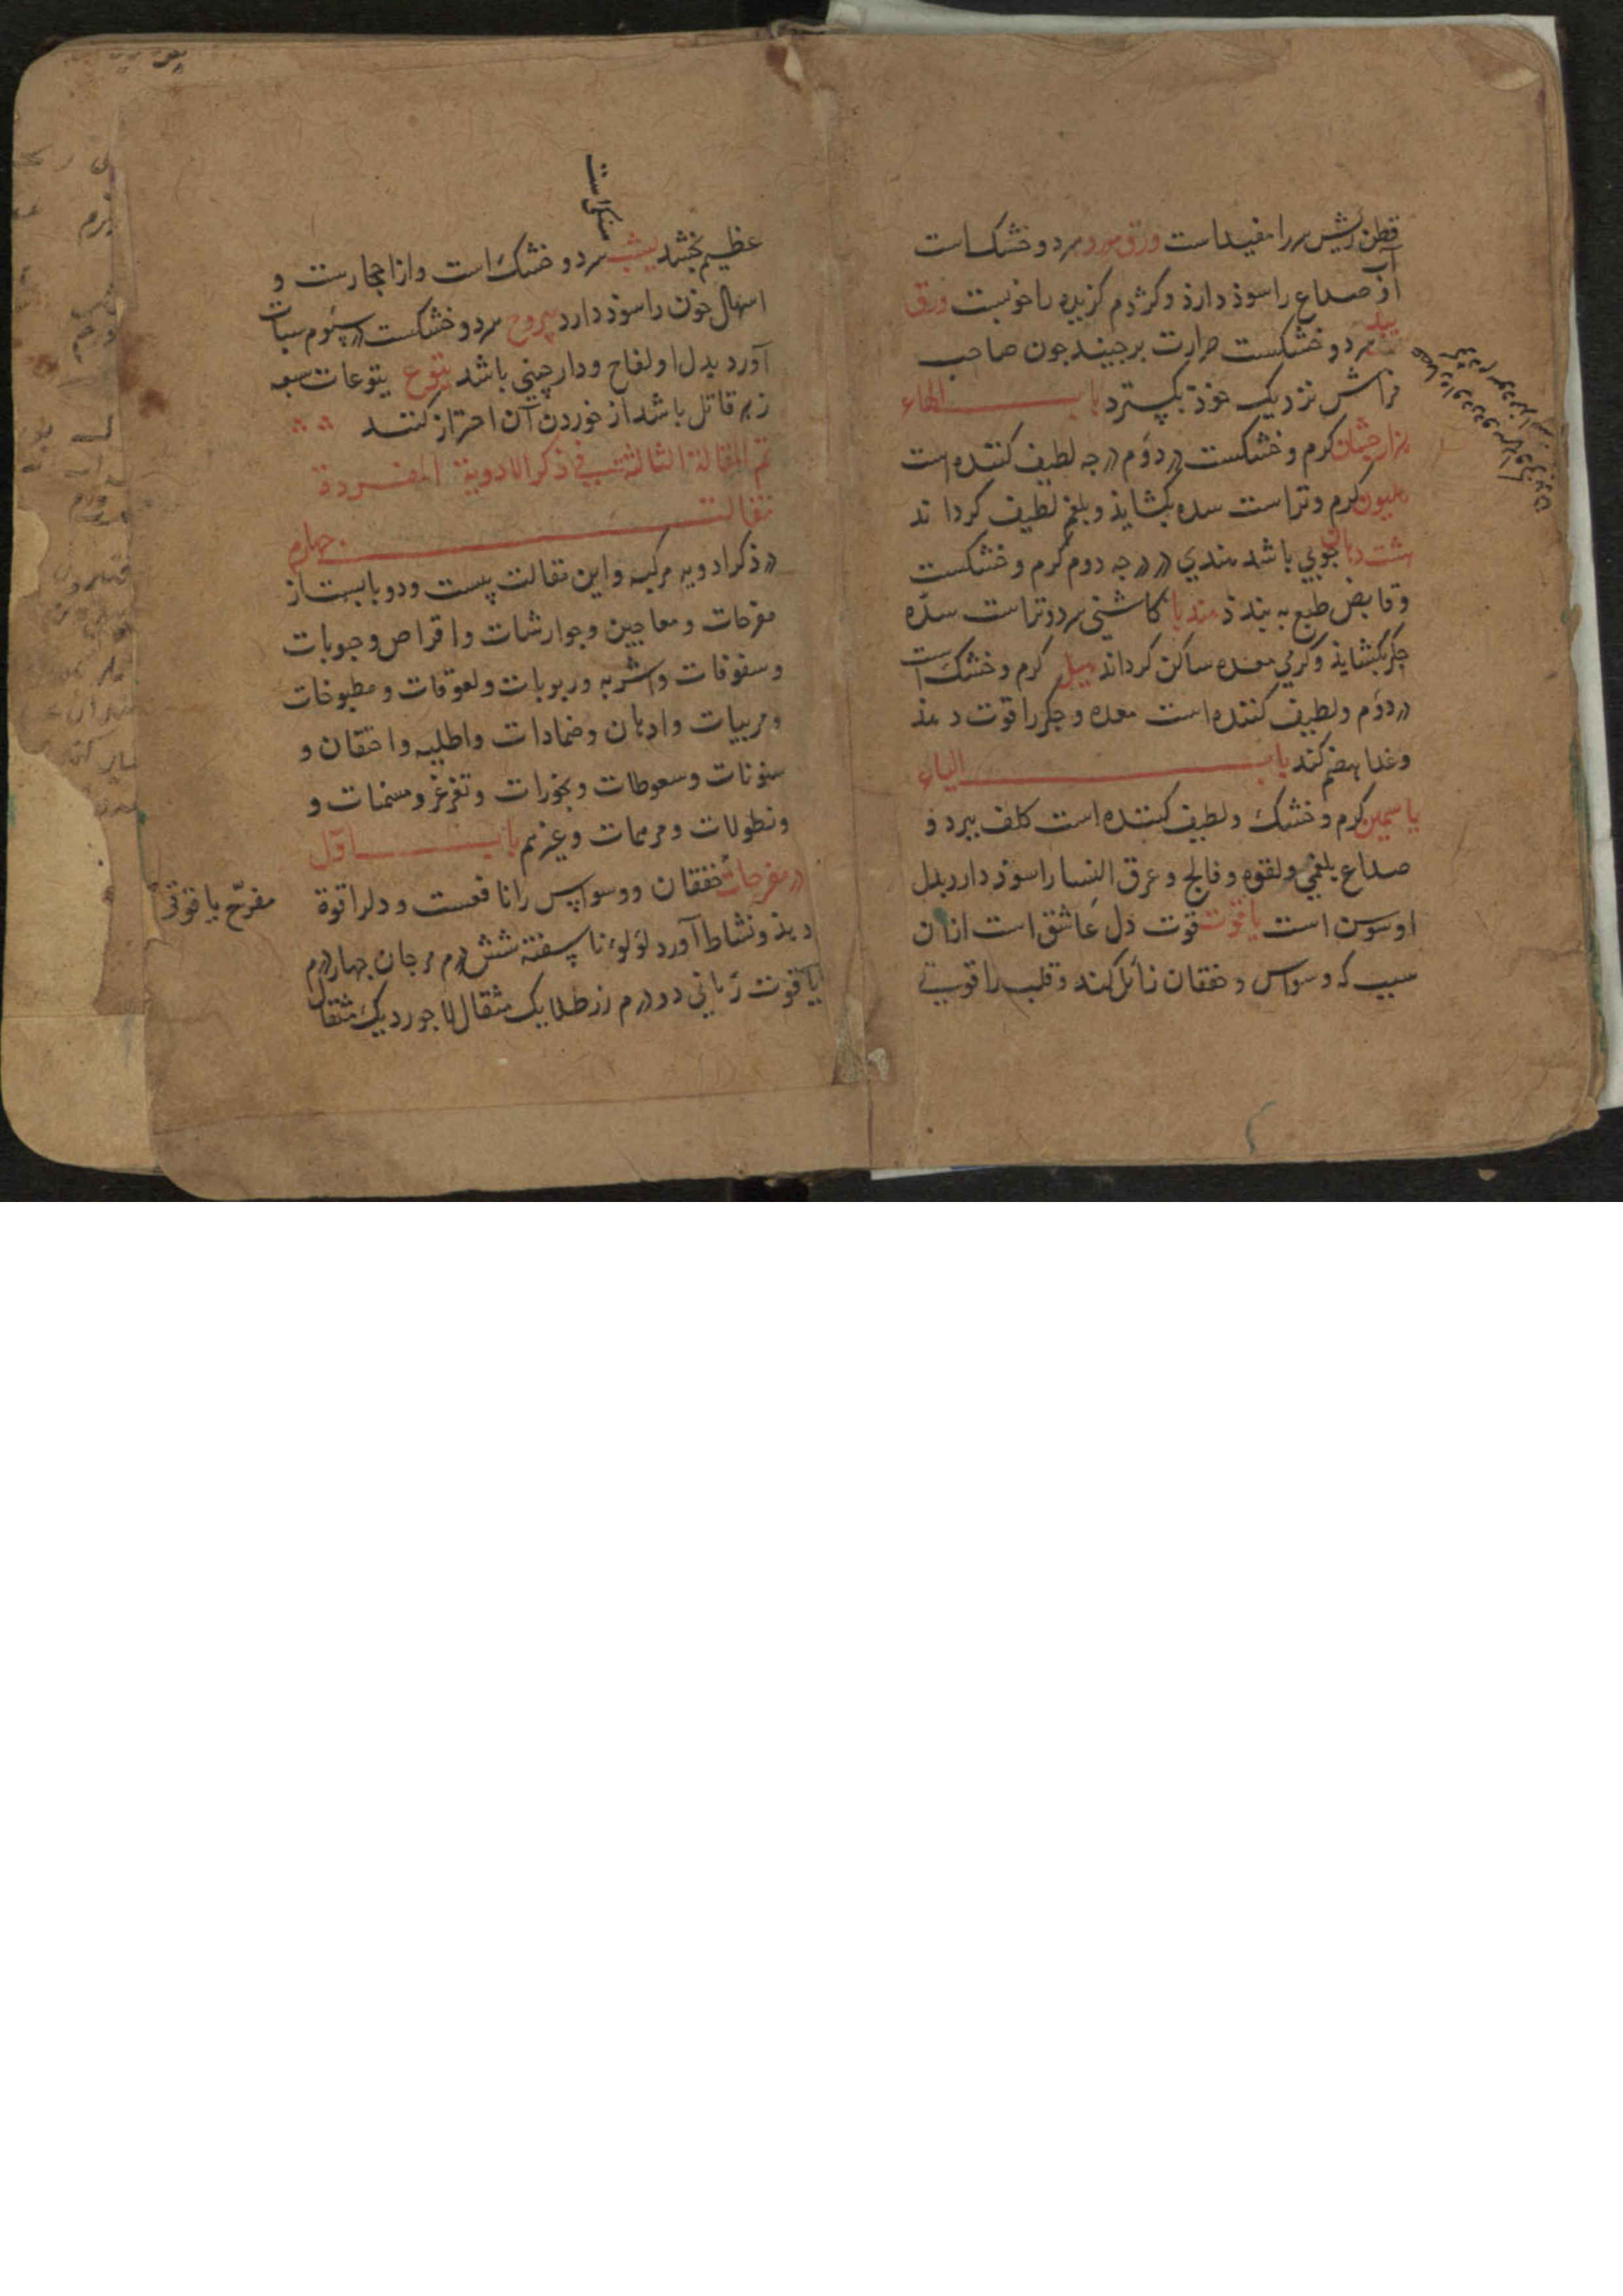 قطن ریش سر را مفیداست ورق مورد سرد و خشک است
آب
او صداع را سوذ دارذ و کژدم کزیده را خوبست ورق
بید سرد و خشکست حرارت برجیند جون صاحب
فراش نزدیک خوذ بکسترد باب الهاء
هزارجشان کرم و خشکست در دوم درجه لطیف کننده است
هلیون کرم و تراست سده بکشایذ و بلغم لطیف کرداند
هشت دهان جوبی باشد هندی در درجه دوم کرم و خشکست
و قابض طبع به بندذ هندبا کاشنی سرد و تراست سدّه
جکر بکشایذ و کرمی معده ساکن کرداند هیل کرم و خشک است
در دوم و لطیف کننده است معده و جکر را قوت دهذ
و غذا هضم کند باب الیاء
یاسمین کرم و خشک و لطیف کننده است کلف ببرد و
صداع بلغمی و لقوه و فالج و عرق النسا را سوذ دارد بدل
او سوسن است یاقوت قوت دل عاشق است ازان
سبب که وسواس و خفقان زائل کند و قلب را قوتی
عظیم بخشد یشب سرد و خشک است و از احجارست و
اسهال خون را سوذ دارد یبروح سرد و خشکست در سوم سبات
آورد بدل او لفاح و دارجینی باشد یتوع یتوعات سبعه
زهر قاتل باشد از خوردن آن احتراز کنند
تم المقالة الثالثة فی ذکر الادویة المفردة
مقالت جهارم
در ذکر ادویه مرکبه و این مقالت بیست و دو بابست از
مفرحات و معاجین و جوارشات و اقراص و حبوبات
و سفوفات و اشربه و ربوبات و لعوقات و مطبوخات
و مربیات و ادهان و ضمادات و اطلیه و احتقان و
سنونات و سعوطات و بخورات و تغرغر و مسمنات و
و نطولات و مرهمات و غیرهم باب اول
در مفرحات خفقان و وسواس را نافعست و دلرا قوة
دهذ و نشاط آورد لؤلؤء ناسفته شش درم مرجان جهار درم
یاقوت رمانی دو درم زر طلا یک مثقال لاجورد یک مثقال
مفرّح یاقوتی